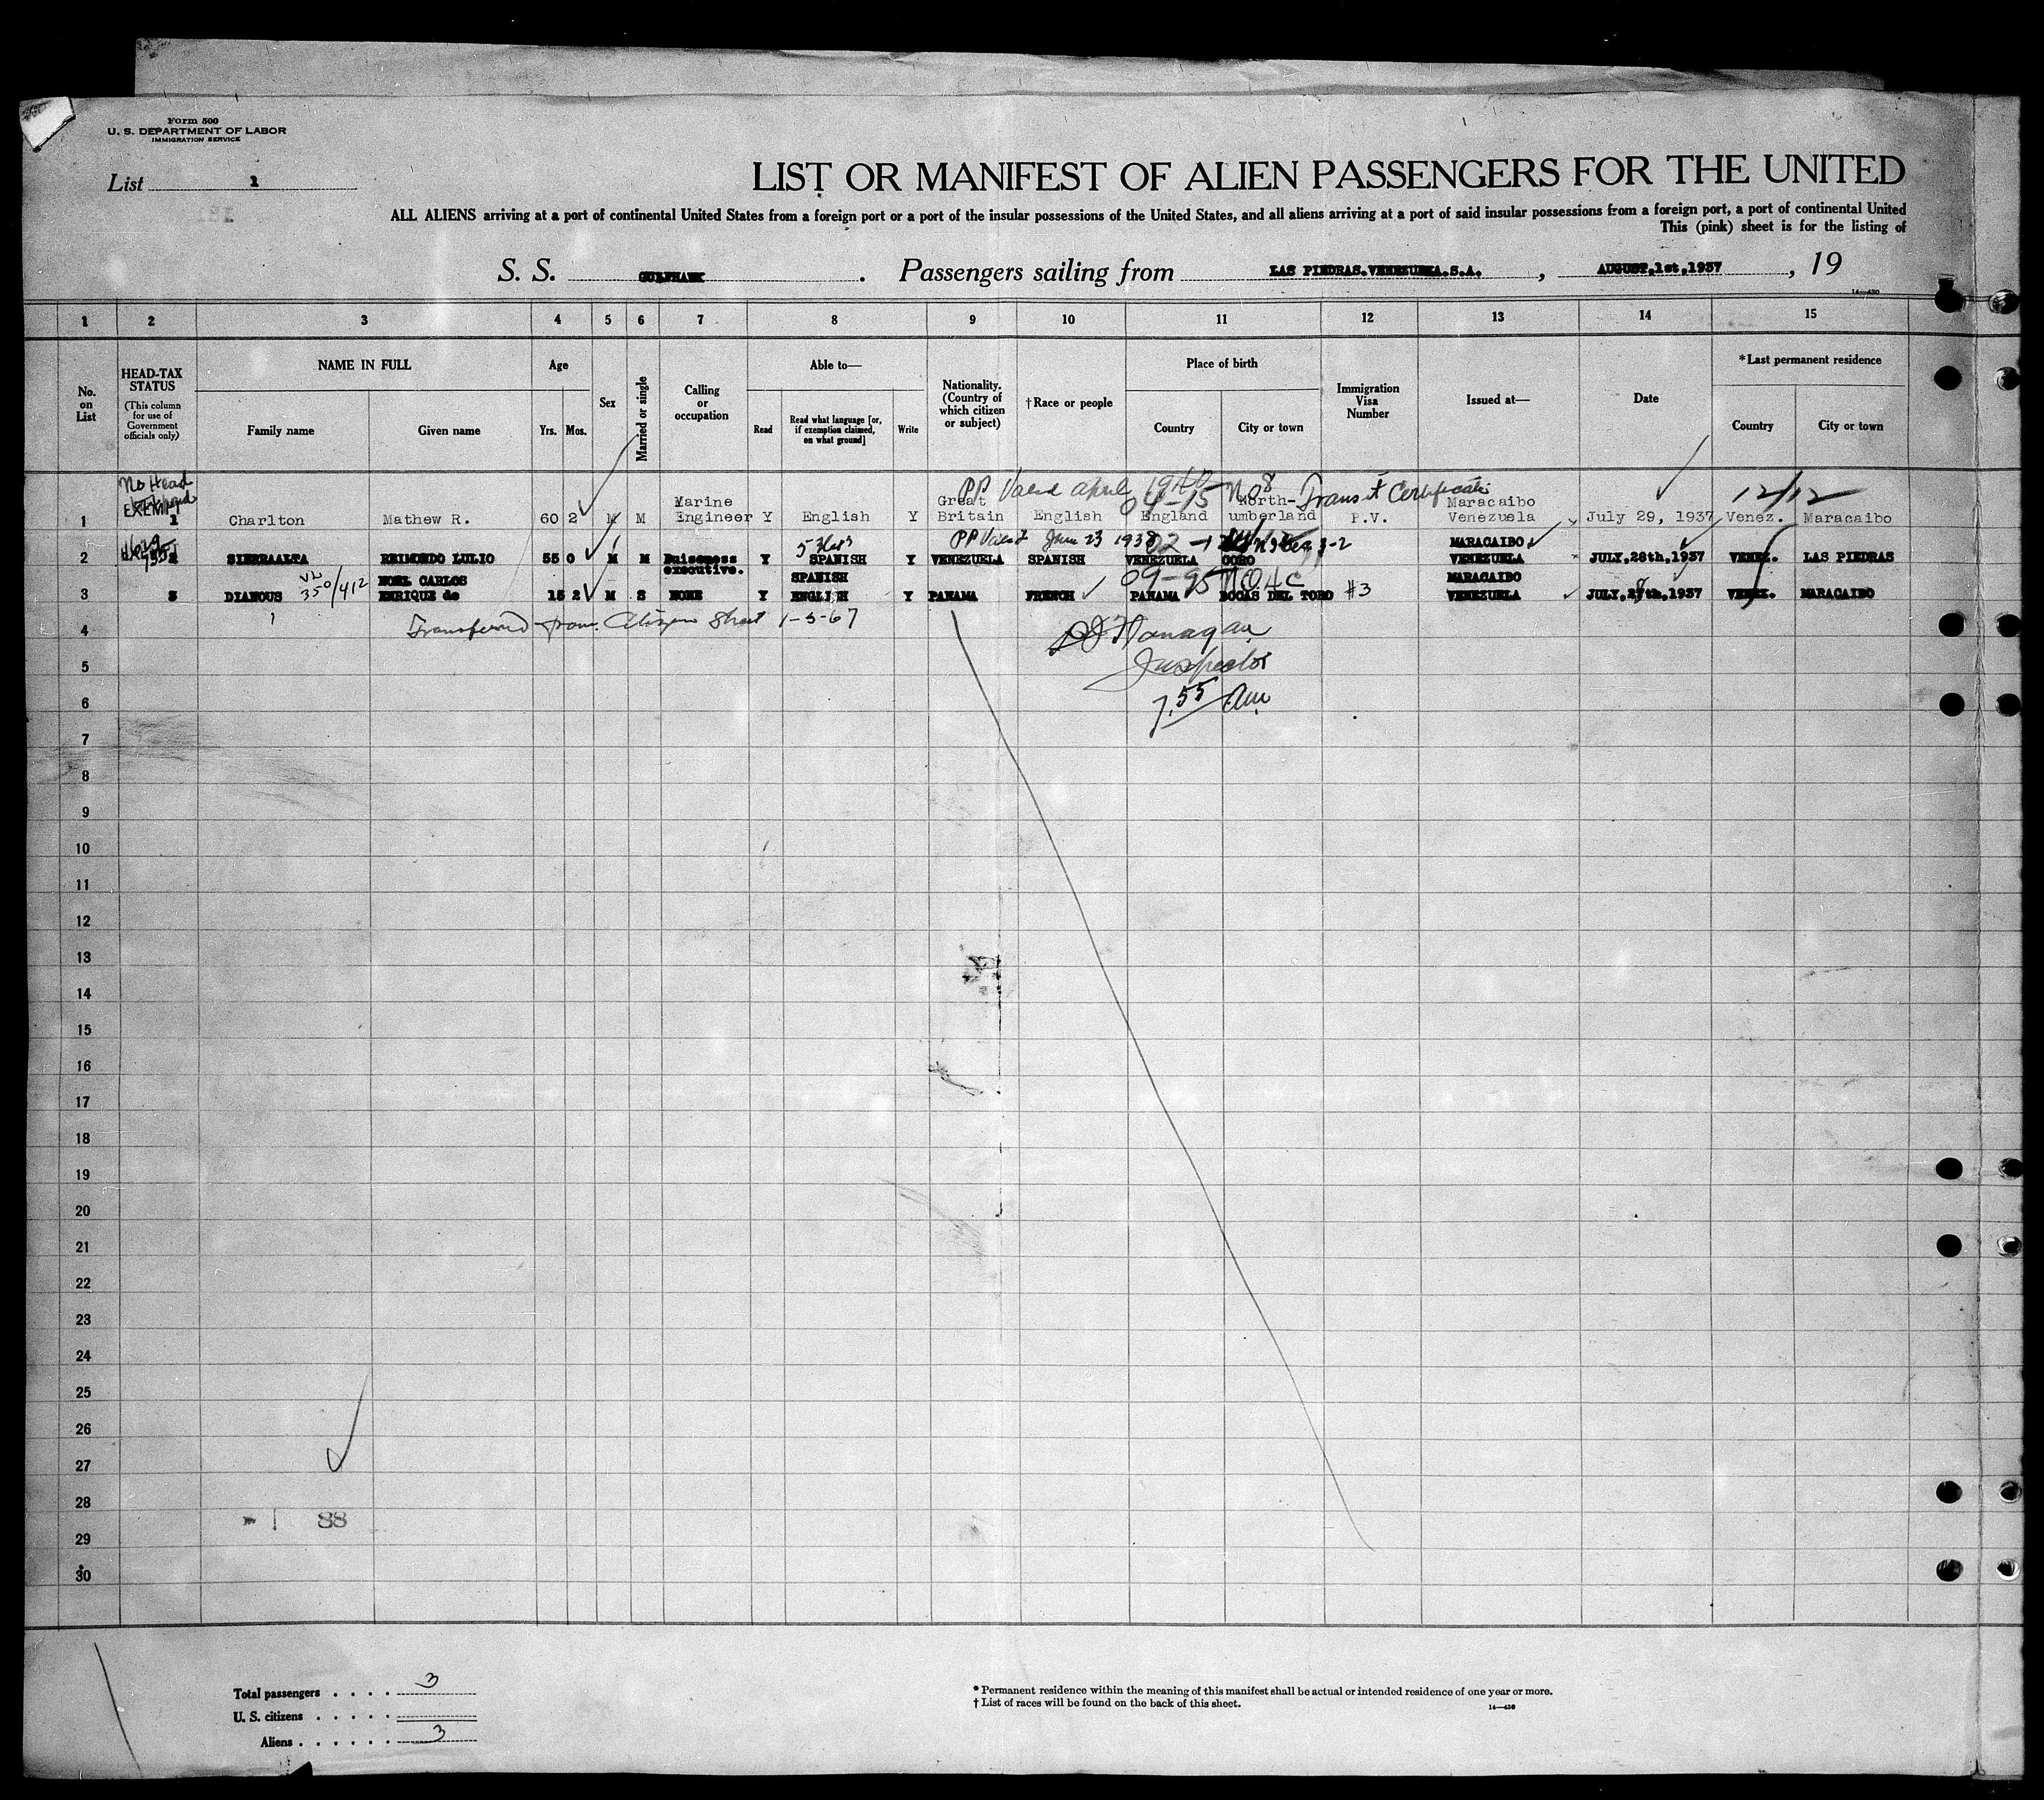 Form 500
U. S. DEPARTMENT OF LABOR
IMMIGRATION SERVICE
List 1
LIST OR MANIFEST OF ALIEN PASSENGERS FOR THE UNITED
ALL ALIENS arriving at a port of continental United States from a foreign port or a port of the insular possessions of the United States, and all aliens arriving at a port of said insular possessions from a foreign port, a port of continental United
This (pink) sheet is for the listing of
S. S. GULFHAWK . Passengers sailing from LAS PIEDRAS.VENEZUELA.S.A. , AUGUST,1st,1937 , 19
14—430
1 2 3 4 5 6 7 8 9 10 11 12 13 14 15
No. on List
HEAD-TAX STATUS
(This column for use of Government officials only)
NAME IN FULL
Family name Given name
Age
Yrs. Mos.
Sex
Married or single
Calling or occupation
Able to—
Read Read what language [or, if exemption claimed, on what ground] Write
Nationality. (Country of which citizen or subject)
†Race or people
Place of birth
Country City or town
Immigration Visa Number
Issued at—
Date
*Last permanent residence
Country City or town
No Head
EXEMPT
PP Valid April 1940 No 8 Transit Certificate
04-15
12/12
1 1 Charlton Mathew R. 60 2 M M Marine Engineer Y English Y Great Britain English England North-umberland P.V. Maracaibo Venezuela July 29, 1937 Venez. Maracaibo
PP Valid Jan 23 1938
2 2 SIERRAALTA REIMUNDO LULIO 55 0 M M Buiseness executive. Y SPANISH Y VENEZUELA SPANISH VENEZUELA CORO 3-2 MARACAIBO VENEZUELA JULY,28th,1937 VENEZ. LAS PIEDRAS
350/412
09-95 NQIC
3 3 DIANOUS NOEL CARLOS ENRIQUE de 15 2 M S NONE Y SPANISH ENGLISH Y PANAMA FRENCH PANAMA BOCAS DEL TORO #3 MARACAIBO VENEZUELA JULY,28th,1937 VENEZ. MARACAIBO
4 Transferred from Citizen Sheet 1-5-67 Flanagan
5 Inspector
6 7.55 Am
7
8
9
10
11
12
13
14
15
16
17
18
19
20
21
22
23
24
25
26
27
28
1 88
29
30
Total passengers . . . . 3
U. S. citizens . . . . .
Aliens . . . . . . 3
* Permanent residence within the meaning of this manifest shall be actual or intended residence of one year or more.
† List of races will be found on the back of this sheet.
14—430